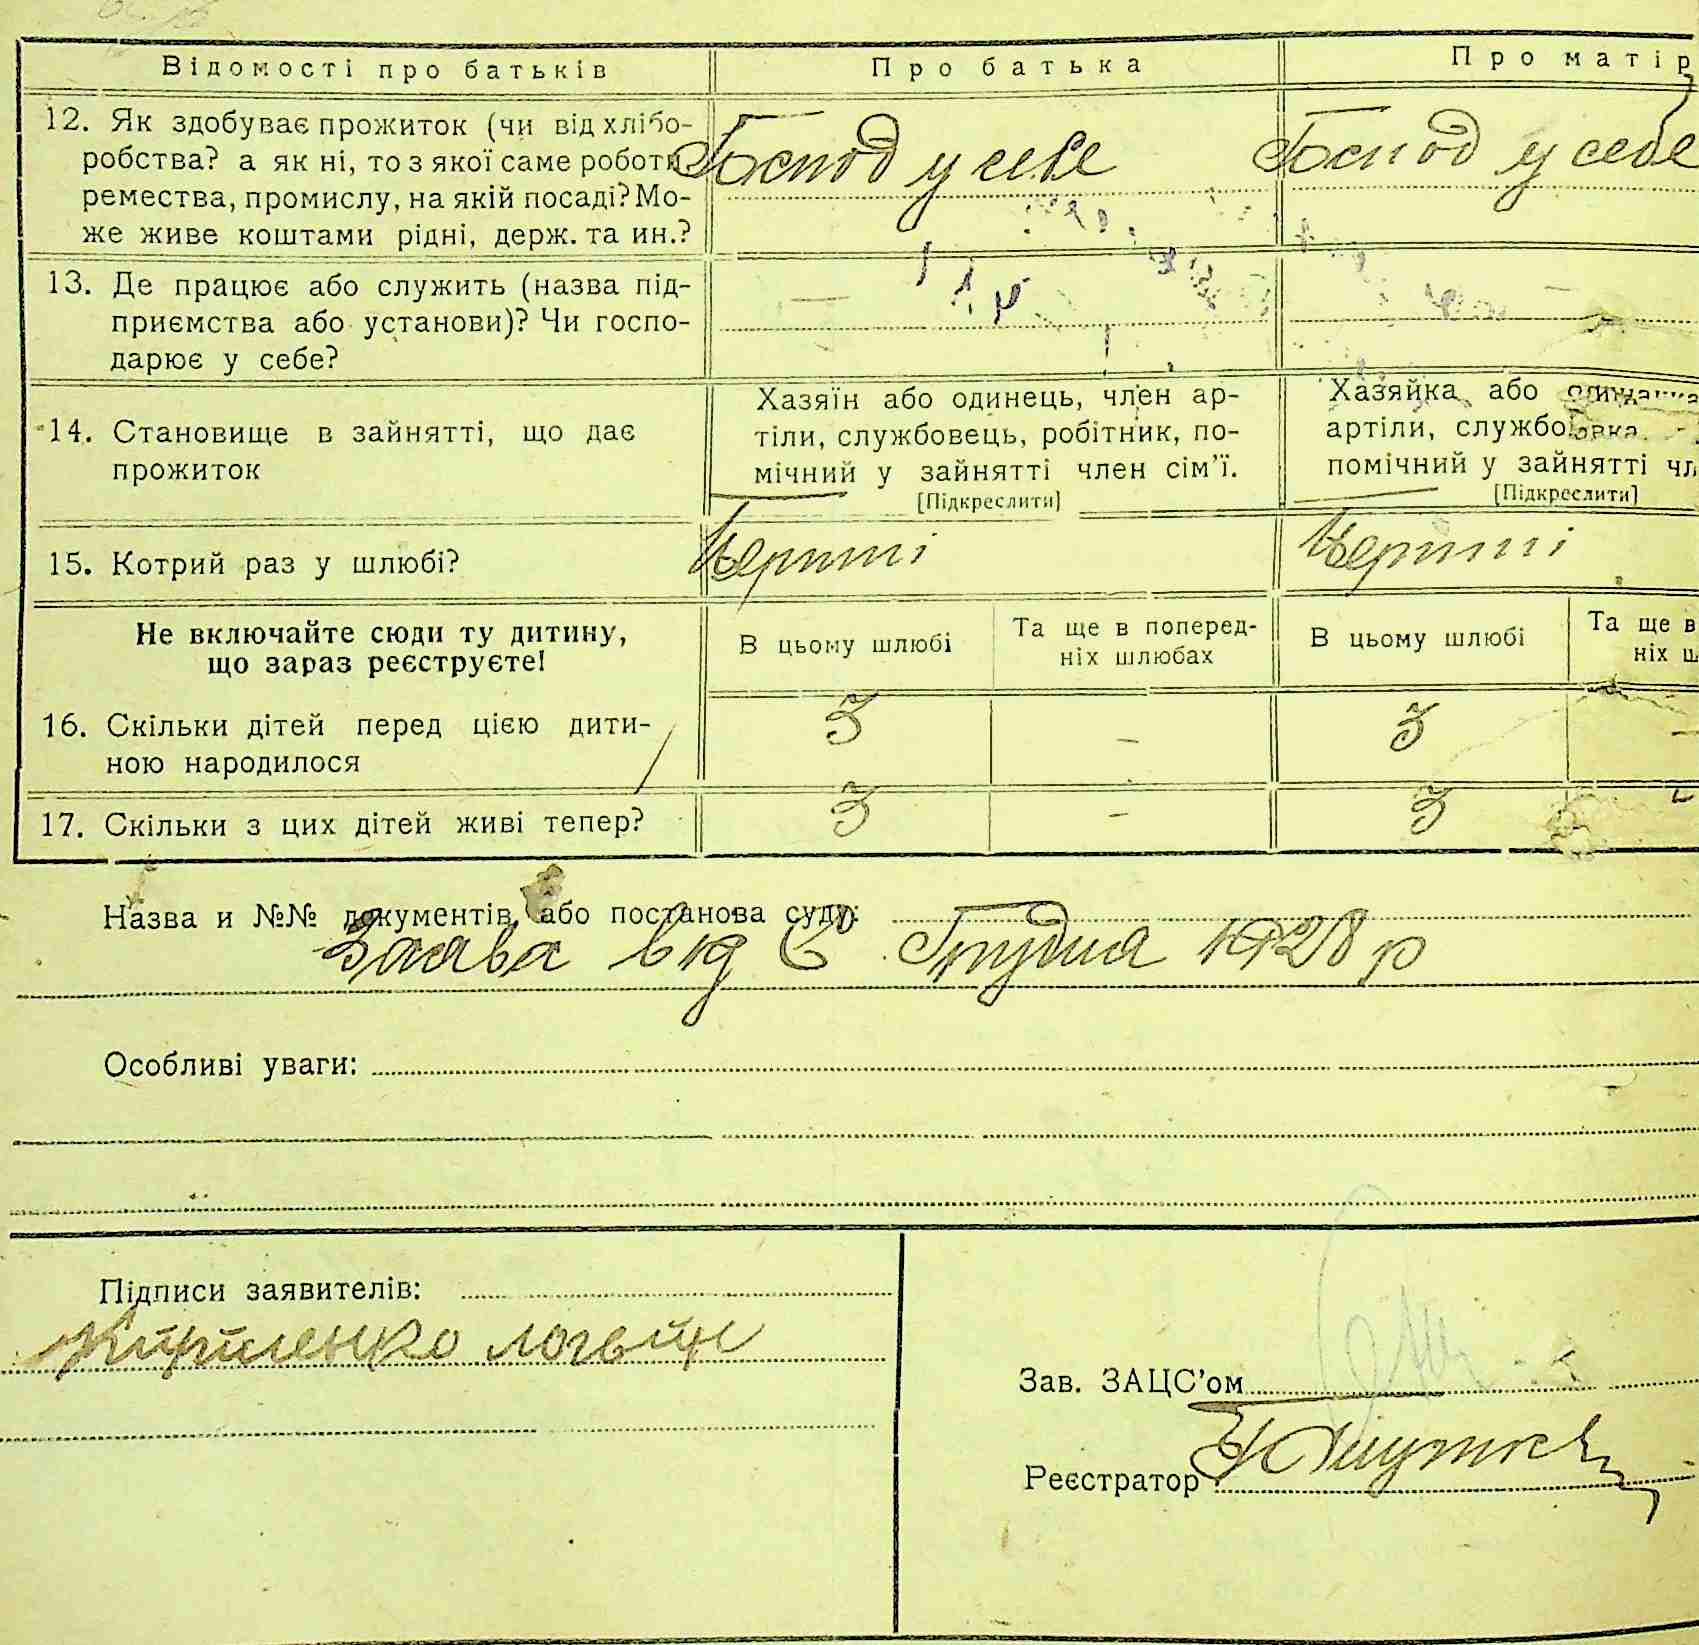 Відомості про батьків
Про батька
Про матір
12. Як здобуває прожиток (чи від хлібо-
робства? а як ні, то з якої саме роботи
ремества, промислу, на якій посаді? Мо-
же живе коштами рідні, держ. та ин.?
Господ у себе
Господ у себе
13. Де працює або служить (назва під-
приємства або установи)? Чи госпо-
дарює у себе?
14. Становище в зайнятті, що дає
прожиток
Хазяїн або одинець, член ар-
тіли, службовець, робітник, по-
мічний у зайнятті член сім'ї.
[Підкреслити]
Хазяйка або
артіли, службовка
помічний у зайнятті чл
[Підкреслити]
15. Котрий раз у шлюбі?
Перший
Перший
Не включайте сюди ту дитину,
що зараз реєструєте!
В цьому шлюбі
Та ще в поперед-
ніх шлюбах
В цьому шлюбі
Та ще в
ніх ш
16. Скільки дітей перед цією дити-
ною народилося
3
–
3
–
17. Скільки з цих дітей живі тепер?
3
–
3
–
Назва и №№ документів, або постанова суду:
Заява від 6 Грудня 1928 р
Особливі уваги:
Підписи заявителів:
Кириленко логвин
Зав. ЗАЦС'ом
Реєстратор